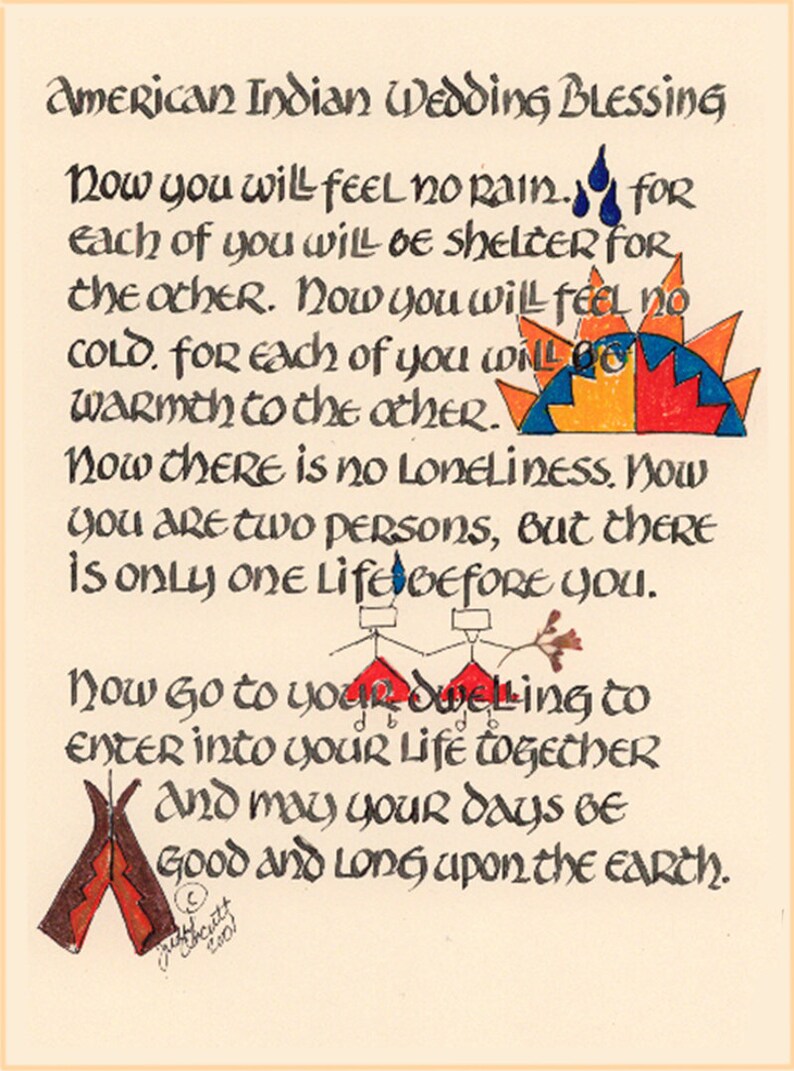 American Indian Wedding Blessing
Now you will feel no rain. for
each of you will be shelter for
the other. Now you will feel no
cold. for each of you will be
warmth to the other.
Now there is no loneliness. Now
you are two persons, but there
is only one life before you.
Now go to your dwelling to
enter into your life together
and may your days be
good and long upon the earth.
©
2001